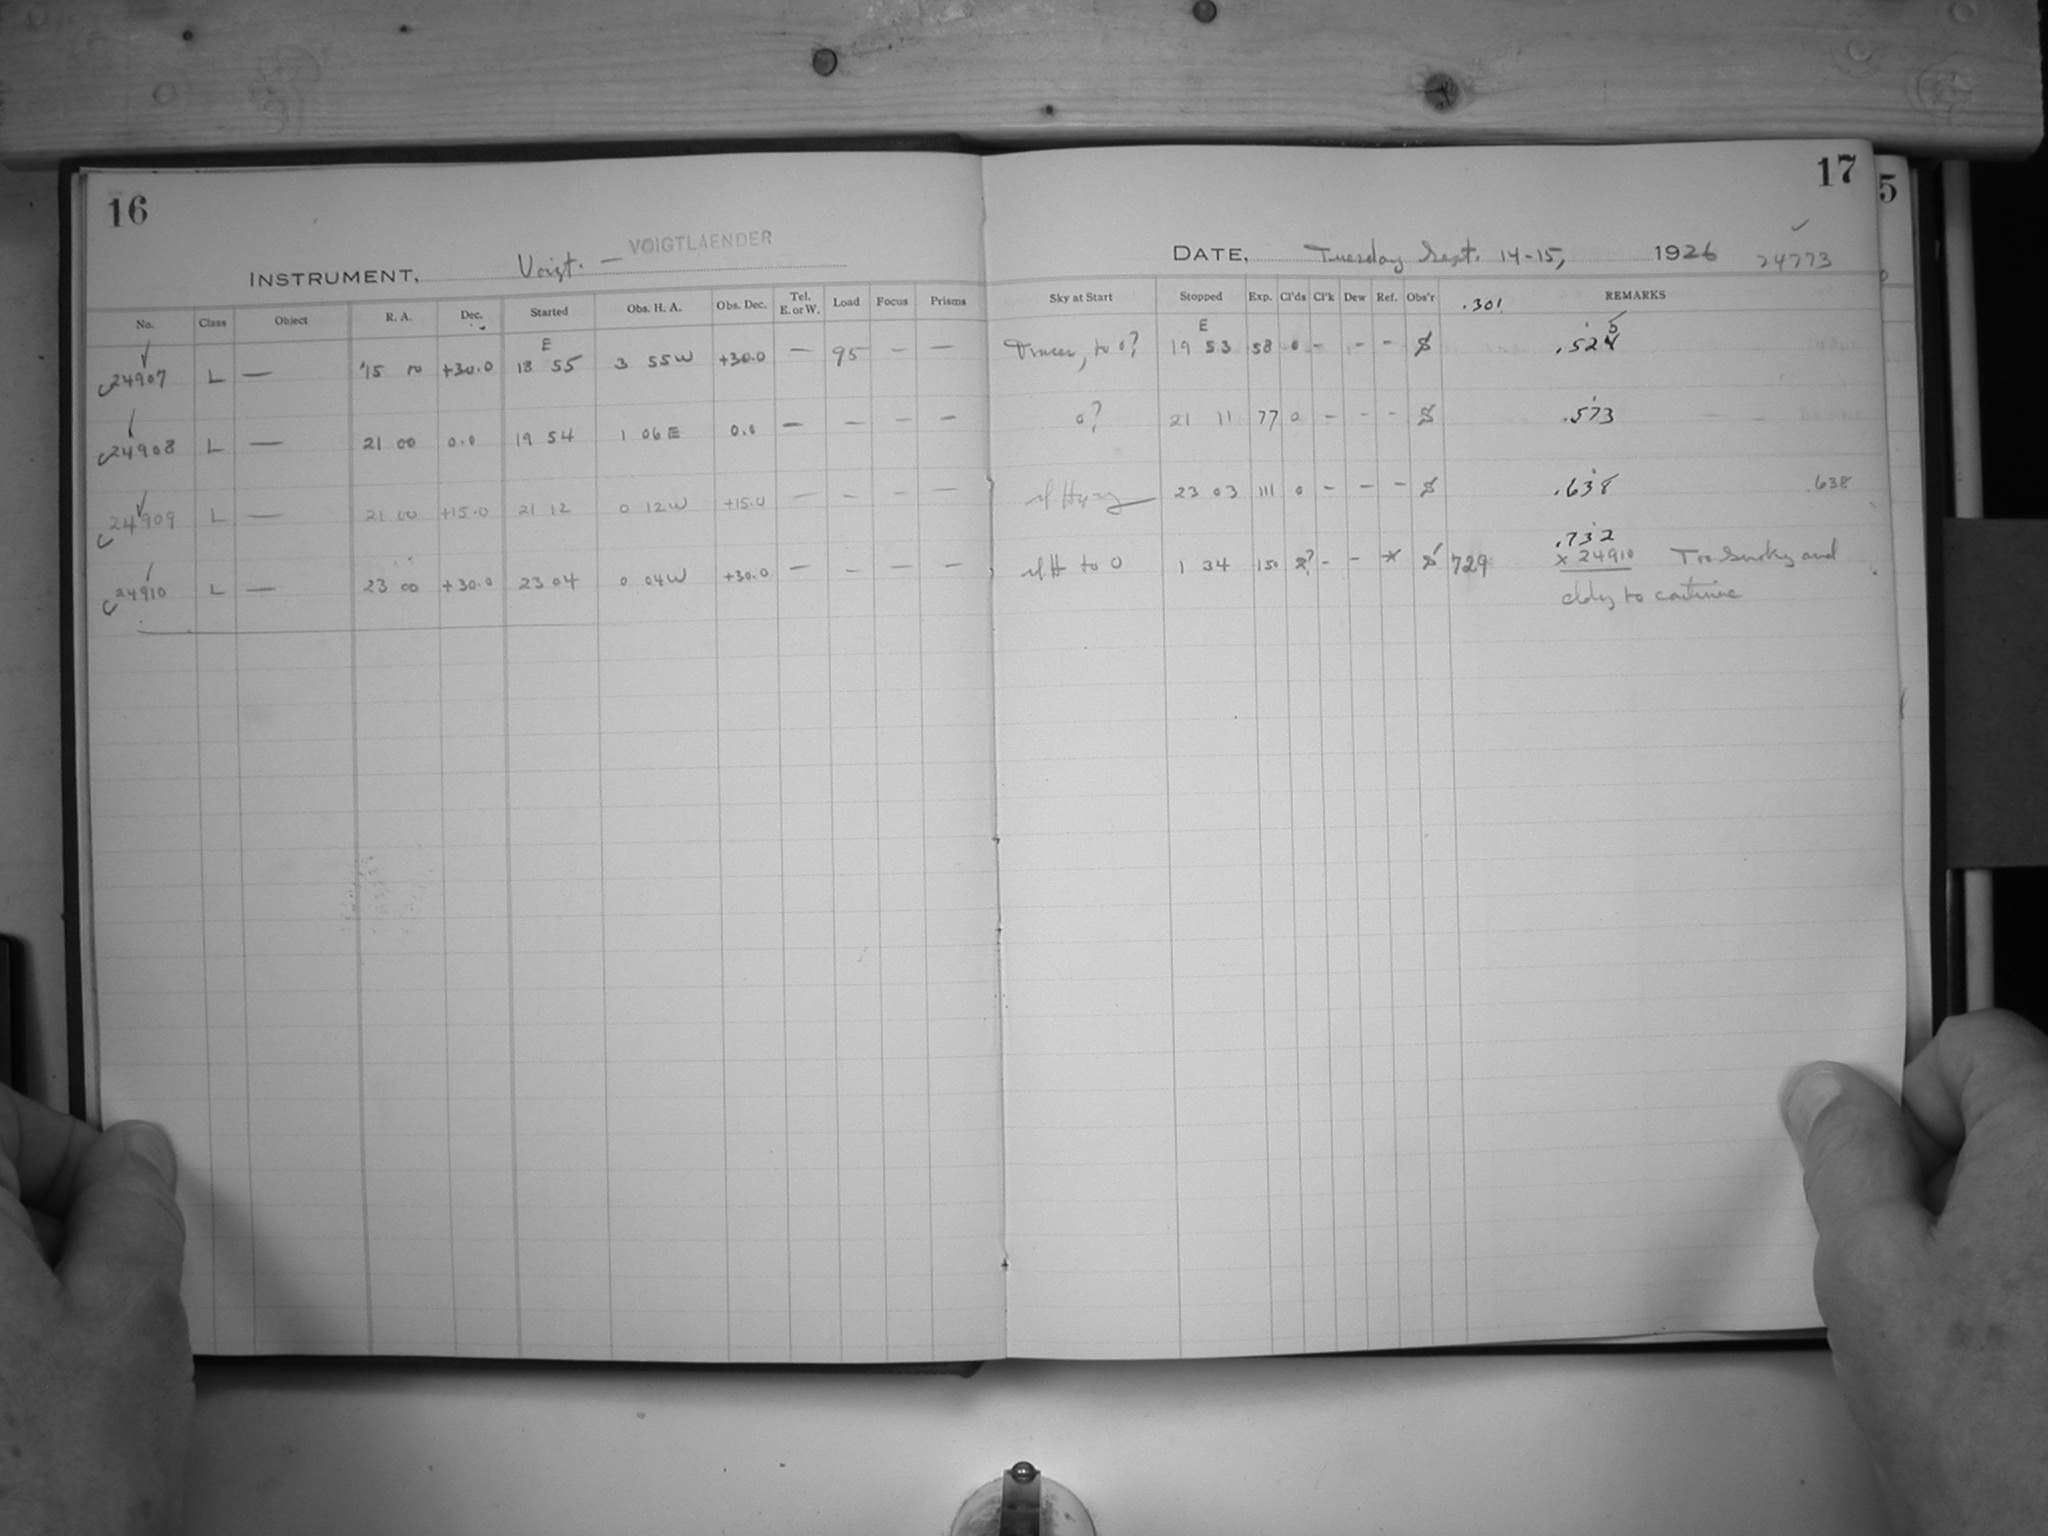 16
17
5
VOIGTLAENDER
INSTRUMENT, Voigt. —
DATE, Tuesday Sept. 14-15, 1926 24773
No. Class Object R. A. Dec. Started Obs. H. A. Obs. Dec. Tel. E. or W. Load Focus Prisms Sky at Start Stopped Exp. Cl'ds Cl'k Dew Ref. Obs'r .301 REMARKS
E E
24907 L — 15 +30.0 18 55 3 55W +30.0 — 95 — — to 0? 19 53 58 0 - - - .52
24908 L — 21 00 0.0 19 54 1 06E 0.0 — — — — 0? 21 11 77 0 - - - .573
24909 L — 21 00 +15.0 21 12 0 12W +15.0 — — — — 23 03 111 0 - - - .638 .638
.732
24910 L — 23 00 +30.0 23 04 0 04W +30.0 — — — — to 0 1 34 150 2? - - * 729 x 24910 Too Smoky and
cldy to continue